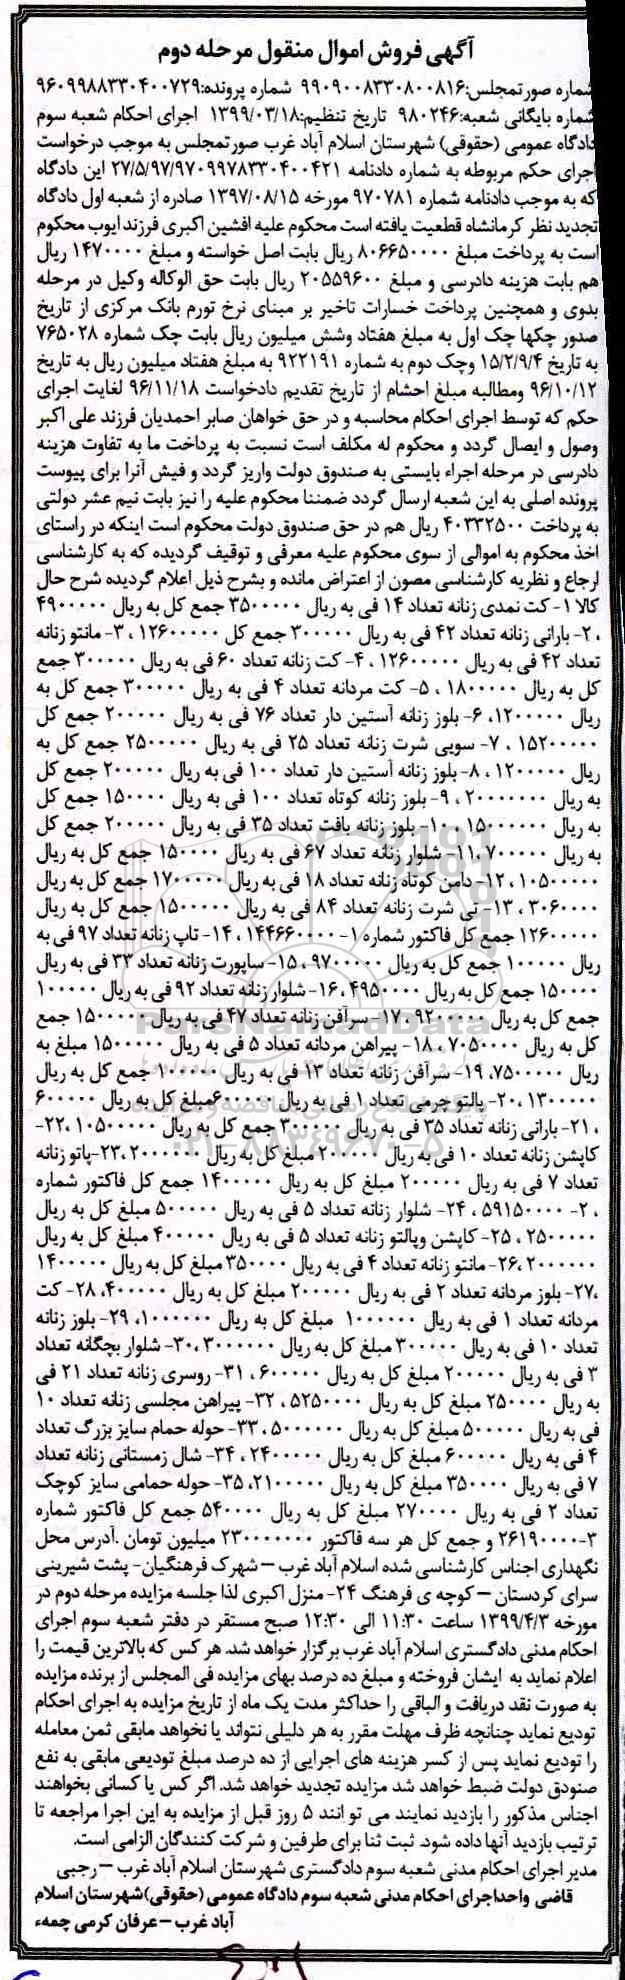 آگهی فروش اموال منقول مرحله دوم
شماره صورتمجلس:۹۹۰۹۰۰۸۳۳۰۸۰۰۸۱۶ شماره پرونده:۹۶۰۹۹۸۸۳۳۰۴۰۰۷۲۹
شماره بایگانی شعبه:۹۸۰۲۴۶ تاریخ تنظیم:۱۳۹۹/۰۳/۱۸ اجرای احکام شعبه سوم
دادگاه عمومی (حقوقی) شهرستان اسلام آباد غرب صورتمجلس به موجب درخواست
اجرای حکم مربوطه به شماره دادنامه ۲۷/۵/۹۷/۹۷۰۹۹۷۸۳۳۰۴۰۰۴۲۱ این دادگاه
که به موجب دادنامه شماره ۹۷۰۷۸۱ مورخه ۱۳۹۷/۰۸/۱۵ صادره از شعبه اول دادگاه
تجدید نظر کرمانشاه قطعیت یافته است محکوم علیه افشین اکبری فرزند ایوب محکوم
است به پرداخت مبلغ ۸۰۶۶۵۰۰۰۰ ریال بابت اصل خواسته و مبلغ ۱۴۷۰۰۰۰ ریال
هم بابت هزینه دادرسی و مبلغ ۲۰۵۵۹۶۰۰ ریال بابت حق الوکاله وکیل در مرحله
بدوی و همچنین پرداخت خسارات تاخیر بر مبنای نرخ تورم بانک مرکزی از تاریخ
صدور چکها چک اول به مبلغ هفتاد وشش میلیون ریال بابت چک شماره ۷۶۵۰۲۸
به تاریخ ۱۵/۲/۹/۴ وچک دوم به شماره ۹۲۲۱۹۱ به مبلغ هفتاد میلیون ریال به تاریخ
۹۶/۱۰/۱۲ ومطالبه مبلغ احشام از تاریخ تقدیم دادخواست ۹۶/۱۱/۱۸ لغایت اجرای
حکم که توسط اجرای احکام محاسبه و در حق خواهان صابر احمدیان فرزند علی اکبر
وصول و ایصال گردد و محکوم له مکلف است نسبت به پرداخت ما به تفاوت هزینه
دادرسی در مرحله اجراء بایستی به صندوق دولت واریز گردد و فیش آنرا برای پیوست
پرونده اصلی به این شعبه ارسال گردد ضمننا محکوم علیه را نیز بابت نیم عشر دولتی
به پرداخت ۴۰۳۳۲۵۰۰ ریال هم در حق صندوق دولت محکوم است اینکه در راستای
اخذ محکوم به اموالی از سوی محکوم علیه معرفی و توقیف گردیده که به کارشناسی
ارجاع و نظریه کارشناسی مصون از اعتراض مانده و بشرح ذیل اعلام گردیده شرح حال
کالا ۱- کت نمدی زنانه تعداد ۱۴ فی به ریال ۳۵۰۰۰۰۰ جمع کل به ریال ۴۹۰۰۰۰۰
، ۲- بارانی زنانه تعداد ۴۲ فی به ریال ۳۰۰۰۰۰ جمع کل ۱۲۶۰۰۰۰۰ ، ۳- مانتو زنانه
تعداد ۴۲ فی به ریال ۱۲۶۰۰۰۰۰ ، ۴- کت زنانه تعداد ۶۰ فی به ریال ۳۰۰۰۰۰ جمع
کل به ریال ۱۸۰۰۰۰۰ ، ۵- کت مردانه تعداد ۴ فی به ریال ۳۰۰۰۰۰ جمع کل به
ریال ۱۲۰۰۰۰۰، ۶- بلوز زنانه آستین دار تعداد ۷۶ فی به ریال ۲۰۰۰۰۰ جمع کل
۱۵۲۰۰۰۰۰ ، ۷- سویی شرت زنانه تعداد ۲۵ فی به ریال ۲۵۰۰۰۰۰ جمع کل به
ریال ۱۲۰۰۰۰۰ ، ۸- بلوز زنانه آستین دار تعداد ۱۰۰ فی به ریال ۲۰۰۰۰۰ جمع کل
به ریال ۲۰۰۰۰۰۰۰ ، ۹- بلوز زنانه کوتاه تعداد ۱۰۰ فی به ریال ۱۵۰۰۰۰ جمع کل
به ریال ۱۵۰۰۰۰۰۰ ، ۱۰- بلوز زنانه بافت تعداد ۳۵ فی به ریال ۲۰۰۰۰۰ جمع کل
به ریال ۷۰۰۰۰۰، ۱۱- شلوار زنانه تعداد ۶۷ فی به ریال ۱۵۰۰۰۰ جمع کل به ریال
۱۰۵۰۰۰۰۰ ، ۱۲- دامن کوتاه زنانه تعداد ۱۸ فی به ریال ۱۷۰۰۰۰۰ جمع کل به ریال
۳۰۶۰۰۰۰ ، ۱۳- تی شرت زنانه تعداد ۸۴ فی به ریال ۱۵۰۰۰۰۰ جمع کل به ریال
۱۲۶۰۰۰۰۰ جمع کل فاکتور شماره ۱- ۱۴۴۶۶۰۰۰۰ ، ۱۴- تاپ زنانه تعداد ۹۷ فی به
ریال ۱۰۰۰۰۰ جمع کل به ریال ۹۷۰۰۰۰۰ ، ۱۵- ساپورت زنانه تعداد ۳۳ فی به ریال
۱۵۰۰۰۰ جمع کل به ریال ۴۹۵۰۰۰۰ ، ۱۶- شلوار زنانه تعداد ۹۲ فی به ریال ۱۰۰۰۰۰
جمع کل به ریال ۹۲۰۰۰۰۰ ، ۱۷- سرآفن زنانه تعداد ۴۷ فی به ریال ۱۵۰۰۰۰۰ جمع
کل به ریال ۷۰۵۰۰۰۰ ، ۱۸- پیراهن مردانه تعداد ۵ فی به ریال ۱۵۰۰۰۰۰ مبلغ به
ریال ۷۵۰۰۰۰۰، ۱۹- سرآفن زنانه تعداد ۱۳ فی به ریال ۱۰۰۰۰۰ جمع کل به ریال
۱۳۰۰۰۰۰ ،۲۰- پالتو چرمی تعداد ۱ فی به ریال ۶۰۰۰۰۰مبلغ کل به ریال ۶۰۰۰۰۰
، ۲۱- بارانی زنانه تعداد ۳۵ فی به ریال ۳۰۰۰۰۰ جمع کل به ریال ۱۰۵۰۰۰۰۰ ،۲۲-
کاپشن زنانه تعداد ۱۰ فی به ریال ۲۰۰۰۰۰ مبلغ کل به ریال ۲۰۰۰۰۰۰،۲۳-پاتو زنانه
تعداد ۷ فی به ریال ۲۰۰۰۰۰ مبلغ کل به ریال ۱۴۰۰۰۰۰ جمع کل فاکتور شماره
۲- ۵۹۱۵۰۰۰۰ ، ۲۴- شلوار زنانه تعداد ۵ فی به ریال ۵۰۰۰۰۰ مبلغ کل به ریال
۲۵۰۰۰۰۰ ، ۲۵- کاپشن وپالتو زنانه تعداد ۵ فی به ریال ۴۰۰۰۰۰ مبلغ کل به ریال
۲۰۰۰۰۰۰ ،۲۶- مانتو زنانه تعداد ۴ فی به ریال ۳۵۰۰۰۰ مبلغ کل به ریال ۱۴۰۰۰۰۰
،۲۷- بلوز مردانه تعداد ۲ فی به ریال ۲۰۰۰۰۰ مبلغ کل به ریال ۴۰۰۰۰۰، ۲۸- کت
مردانه تعداد ۱ فی به ریال ۱۰۰۰۰۰۰ مبلغ کل به ریال ۱۰۰۰۰۰۰، ۲۹- بلوز زنانه
تعداد ۱۰ فی به ریال ۳۰۰۰۰۰ مبلغ کل به ریال ۳۰۰۰۰۰۰ ،۳۰- شلوار بچگانه تعداد
۳ فی به ریال ۲۰۰۰۰۰ مبلغ کل به ریال ۶۰۰۰۰۰ ، ۳۱- روسری زنانه تعداد ۲۱ فی
به ریال ۲۵۰۰۰۰ مبلغ کل به ریال ۵۲۵۰۰۰۰ ، ۳۲- پیراهن مجلسی زنانه تعداد ۱۰
فی به ریال ۵۰۰۰۰۰ مبلغ کل به ریال ۵۰۰۰۰۰۰ ، ۳۳- حوله حمام سایز بزرگ تعداد
۴ فی به ریال ۶۰۰۰۰۰ مبلغ کل به ریال ۲۴۰۰۰۰۰ ، ۳۴- شال زمستانی زنانه تعداد
۷ فی به ریال ۳۵۰۰۰۰ مبلغ کل به ریال ۲۱۰۰۰۰۰، ۳۵- حوله حمامی سایز کوچک
تعداد ۲ فی به ریال ۲۷۰۰۰۰ مبلغ کل به ریال ۵۴۰۰۰۰ جمع کل فاکتور شماره
۳-۲۶۱۹۰۰۰۰ و جمع کل هر سه فاکتور ۲۳۰۰۰۰۰۰۰ میلیون تومان .آدرس محل
نگهداری اجناس کارشناسی شده اسلام آباد غرب – شهرک فرهنگیان- پشت شیرینی
سرای کردستان – کوچه ی فرهنگ ۲۴- منزل اکبری لذا جلسه مزایده مرحله دوم در
مورخه ۱۳۹۹/۴/۳ ساعت ۱۱:۳۰ الی ۱۲:۳۰ صبح مستقر در دفتر شعبه سوم اجرای
احکام مدنی دادگستری اسلام آباد غرب برگزار خواهد شد. هر کس که بالاترین قیمت را
اعلام نماید به ایشان فروخته و مبلغ ده درصد بهای مزایده فی المجلس از برنده مزایده
به صورت نقد دریافت و الباقی را حداکثر مدت یک ماه از تاریخ مزایده به اجرای احکام
تودیع نماید چنانچه ظرف مهلت مقرر به هر دلیلی نتواند یا نخواهد مابقی ثمن معامله
را تودیع نماید پس از کسر هزینه های اجرایی از ده درصد مبلغ تودیعی مابقی به نفع
صنودق دولت ضبط خواهد شد مزایده تجدید خواهد شد. اگر کس یا کسانی بخواهند
اجناس مذکور را بازدید نمایند می تو انند ۵ روز قبل از مزایده به این اجرا مراجعه تا
ترتیب بازدید آنها داده شود. ثبت ثنا برای طرفین و شرکت کنندگان الزامی است.
مدیر اجرای احکام مدنی شعبه سوم دادگستری شهرستان اسلام آباد غرب – رجبی
قاضی واحداجرای احکام مدنی شعبه سوم دادگاه عمومی (حقوقی)شهرستان اسلام
آباد غرب – عرفان کرمی چمعه
ParsNamadData
۰۲۱-۸۸۳۴۹۶۷۰-۵